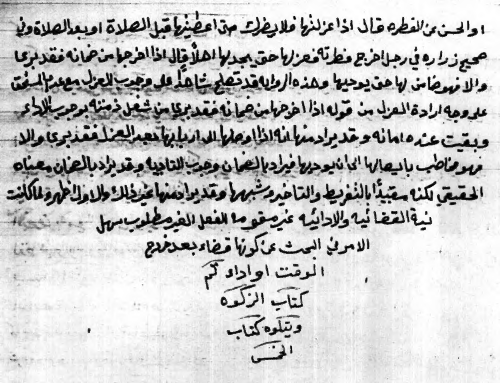 او الحسن عن الفطره قال اذا عزلتها فلا يضرك متى اعطيتها قبل الصلاة او بعد الصلاة وفي
صحيح زراره في رجل اخرج فطرته فعزلها حتى يجد لها اهلا قال اذا اخرجها من ضمانه فقد برئ
والا فهو ضامن لها حتى يؤديها وهذه الروايه قد تصلح شاهدا على وجوب العزل مع عدم المستحق
على وجه ارادة العزل من قوله اذا اخرجها من ضمانه فقد برئ من شغل ذمته بوجوب الاداء
وبقيت عنده امانه وقد يراد منها انه اذا اوصلها الى اربابها بعد العزل فقد برئ والا
فهو مخاطب بايصالها الى ان يوديها فيراد بالضمان وجوب التاديه وقد يراد بالضمان معناه
الحقيقي لكنه مقيدا بالتفريط والتاخير وشبهها وقد يراد منها غير ذلك والاول اظهر ولما كانت
نية القضائيه والادائيه غير مقومه للفعل الغير مطلوب سهل
الامر في البحث عن كونها قضاء بعد خروج
الوقت او اداء تم
كتاب الزكوه
ويتلوه كتاب
الخمس